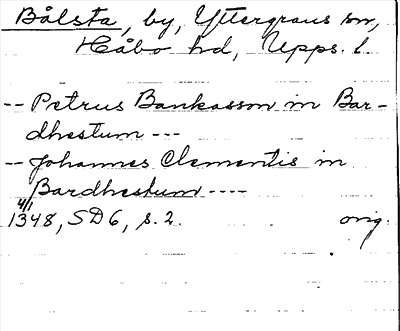 Bålsta, by, Yttergrans sn,
Håbo hd, Upps. l.
-- Petrus Bankasson in Bar-
dhestum ---
-- Johannes Clementis in
Bardhestum ----
4/1
1348, SD6, s. 2. orig.